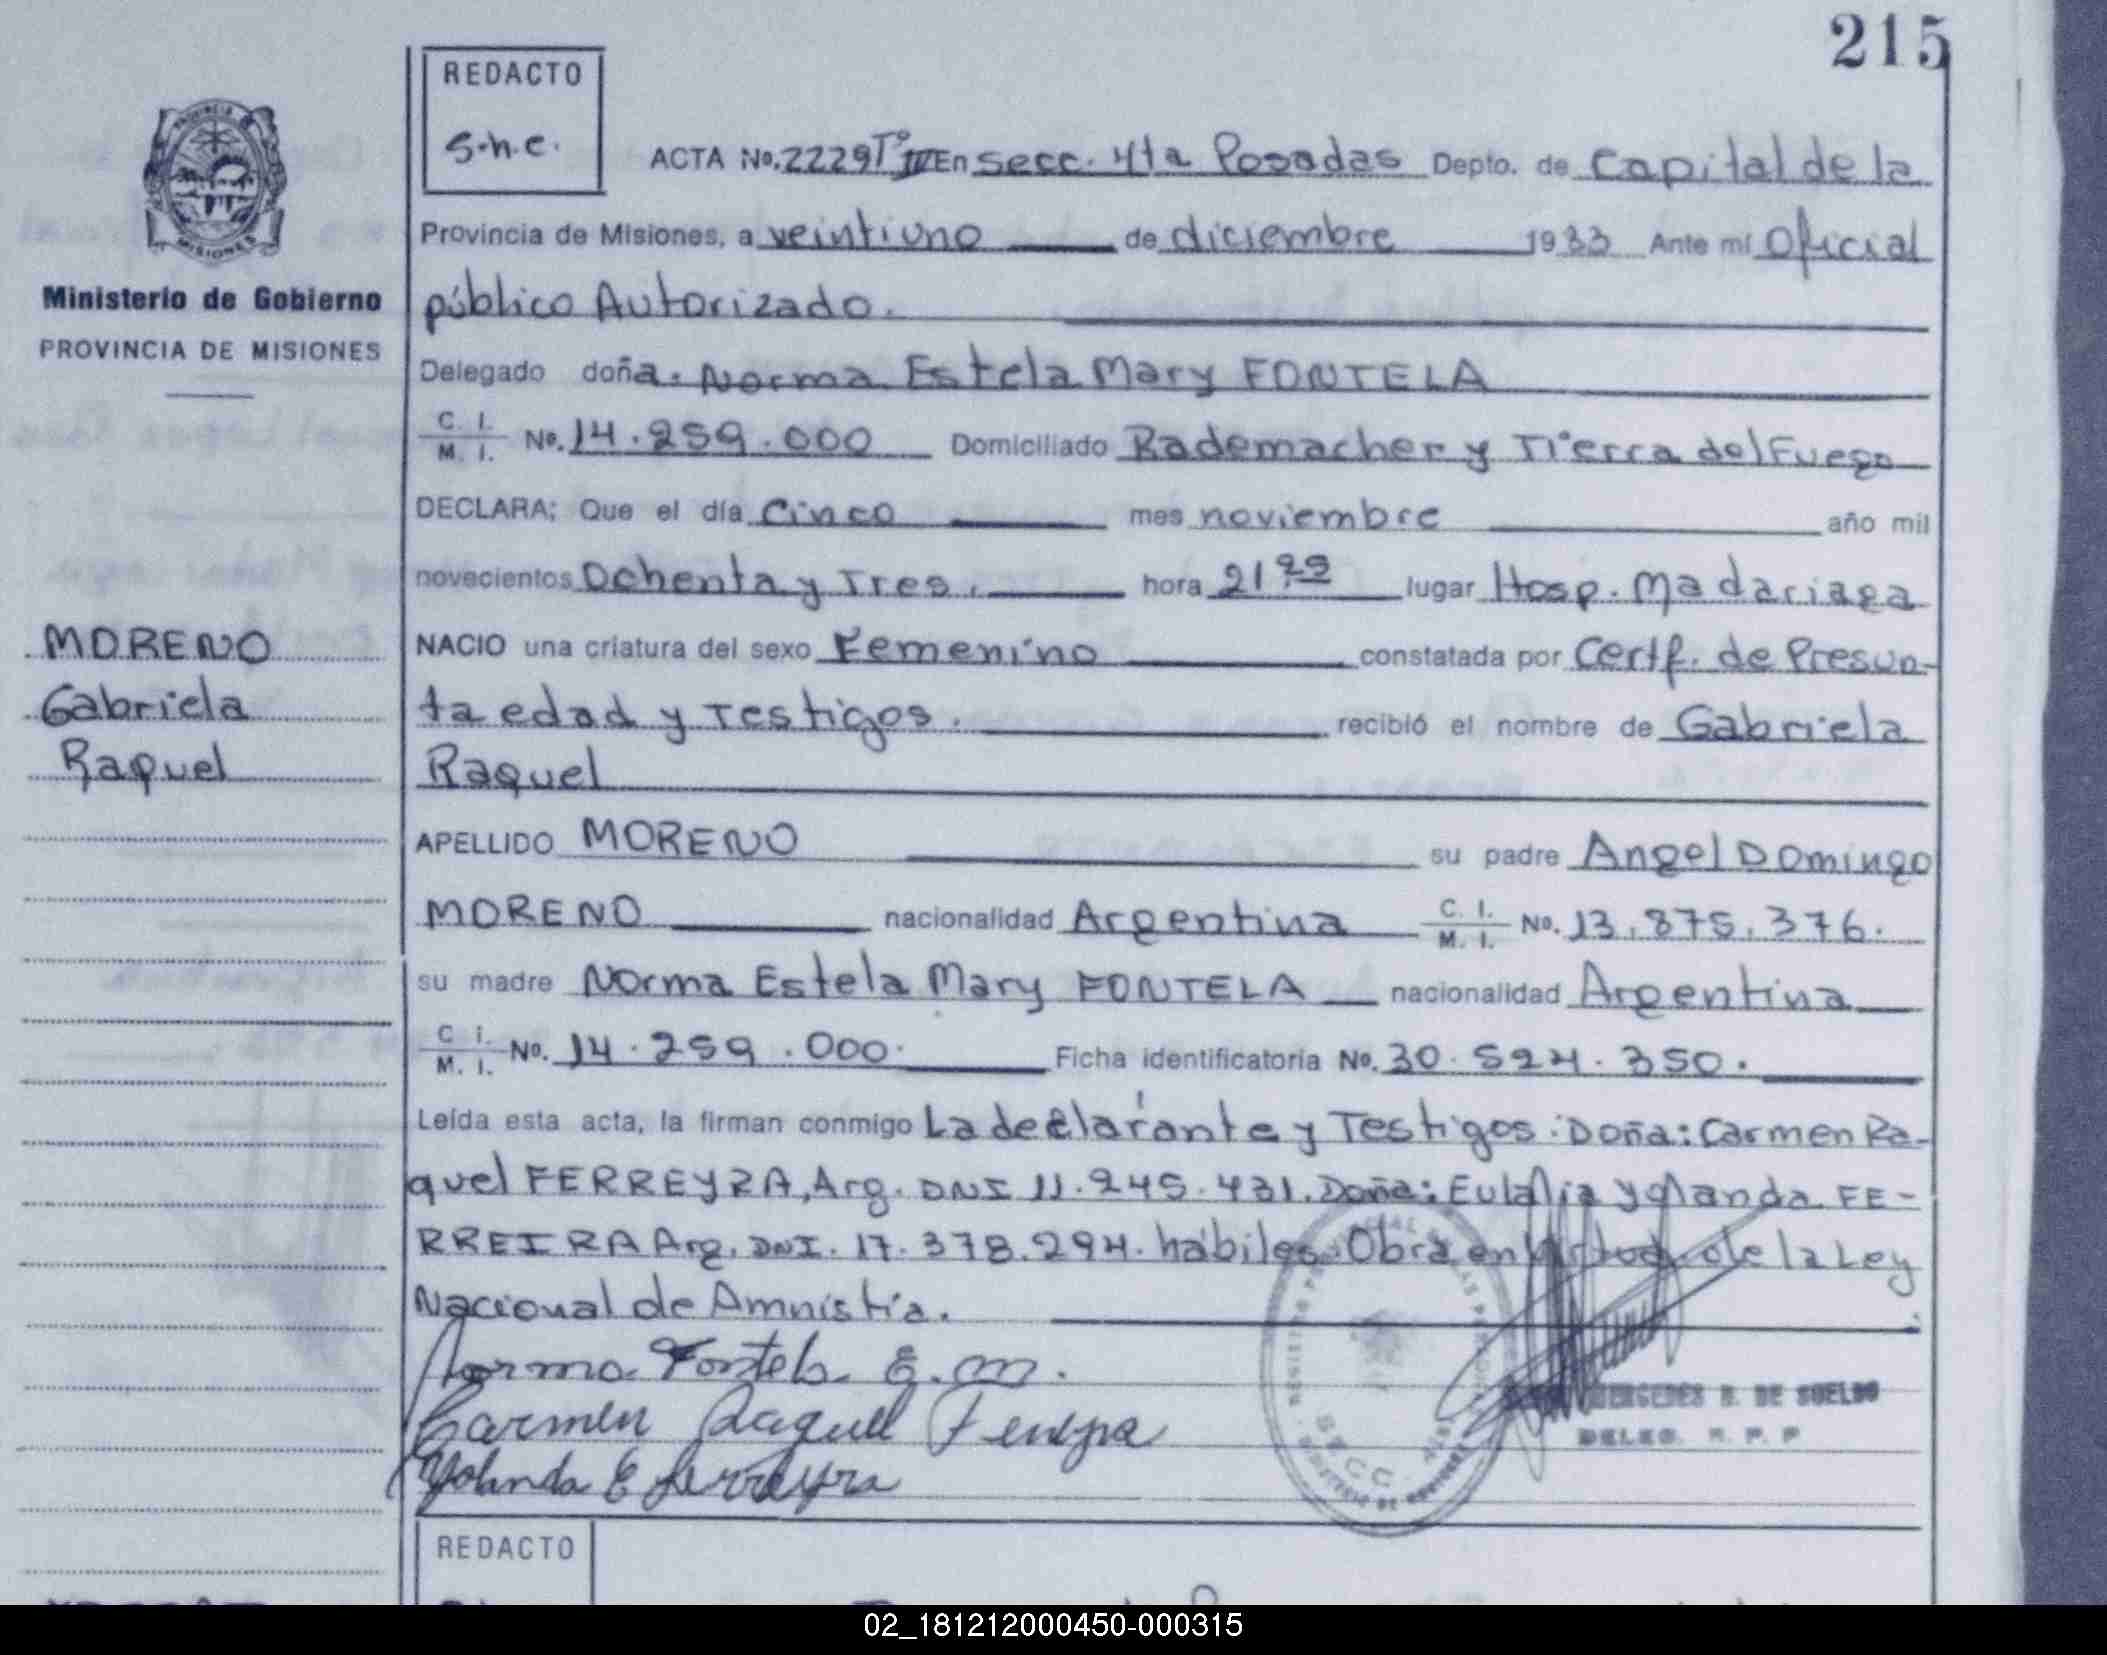 215
REDACTO
S.h.e.
PROVINCIA DE
MISIONES
Ministerio de Gobierno
PROVINCIA DE MISIONES
MORENO
Gabriela
Raquel
ACTA No. 2229 Tº IV En secc. 4ta Posadas Depto. de Capital de la
Provincia de Misiones, a veintiuno de diciembre 1983 Ante mí Oficial
público Autorizado.
Delegado doña. Norma Estela Mary FONTELA
C. I. M. I. No. 14.259.000 Domiciliado Rademacher y Tierra del Fuego
DECLARA; Que el día cinco mes noviembre año mil
novecientos Ochenta y Tres. hora 21 lugar Hosp. Madariaga
NACIO una criatura del sexo Femenino constatada por Certf. de Presun-
ta edad y Testigos. recibió el nombre de Gabriela
Raquel
APELLIDO MORENO su padre Angel Domingo
MORENO nacionalidad Argentina C. I. M. I. No. 13.875.376.
su madre Norma Estela Mary FONTELA nacionalidad Argentina
C. I. M. I. No. 14.259.000. Ficha identificatoria No. 30.524.350.
Leída esta acta, la firman conmigo La declarante y Testigos: Doña: Carmen Ra-
quel FERREYRA, Arg. DNI 11.245.431. Doña: Eulalia Yolanda FE-
RREIRA Arg. DNI. 17.378.294. hábiles. Obra en virtud de la Ley
Nacional de Amnistia.
Norma Fontela E.M.
Carmen Raquel Ferreyra
Yolanda E Ferreyra
MERCEDES B. DE SUELDO
DELEG. R. P. P
SECC.
REDACTO
02_181212000450-000315